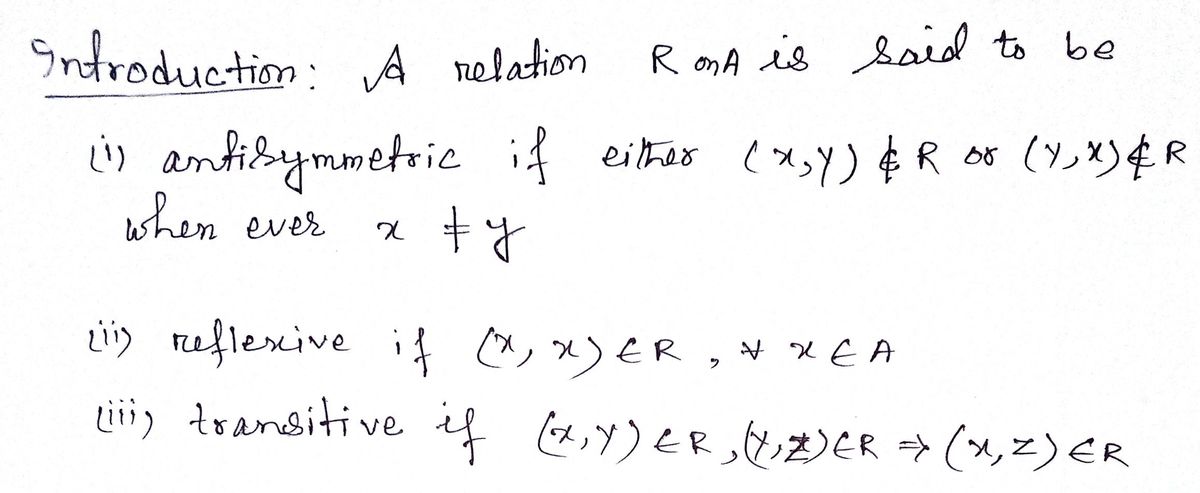 Introduction: A relation R on A is said to be
(i) antisymmetric if either (x,y) ∉ R or (y,x) ∉ R
when ever x ≠ y
(ii) reflexive if (x, x) ∈ R , ∀ x ∈ A
(iii) transitive if (x,y) ∈ R ,(y,z) ∈ R ⇒ (x,z) ∈ R